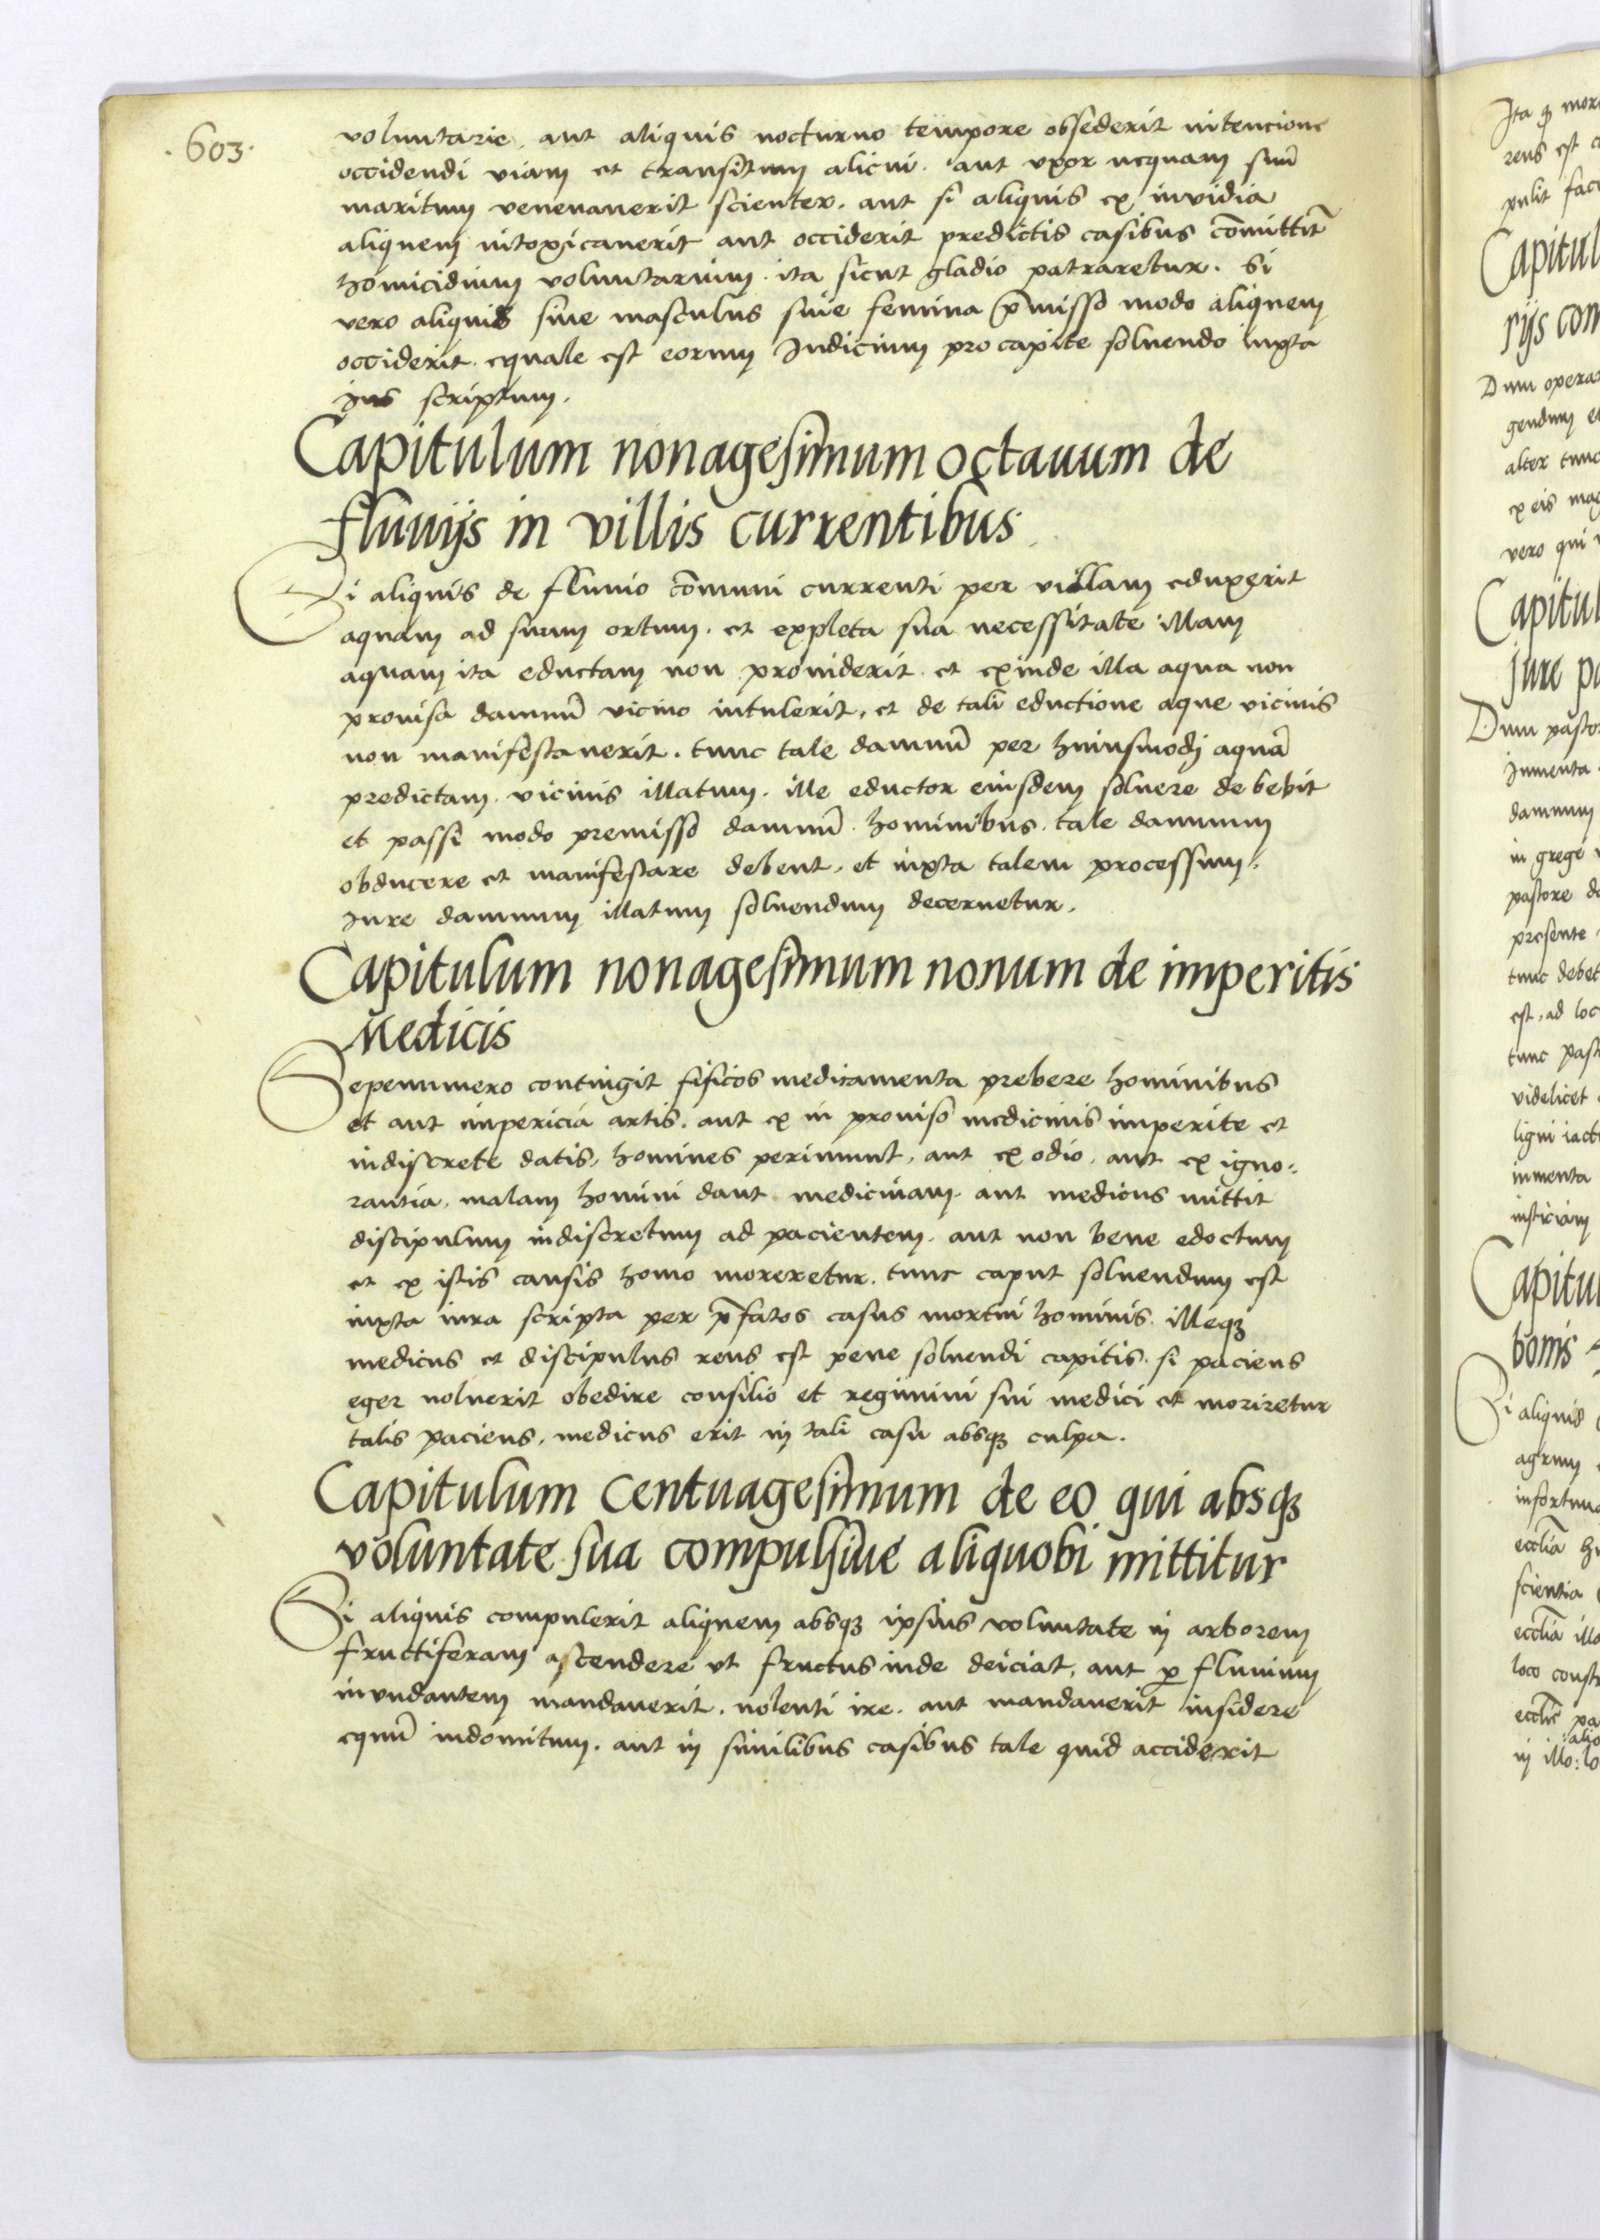 .603.
voluntarie. aut aliquis nocturno tempore obsederit intencione
occidendi viam et transitum alicui. aut vxor nequam suū
maritum venenauerit scienter. aut si aliquis ex inuidia
aliquem intoxicauerit aut occiderit predictis casibus cōmittit̄
homicidium voluntarium. ita sicut gladio patraretur. Si
vero aliquis siue masculus siue femina p̄misso modo aliquem
occiderit. equale est eorum Iudicium pro capite soluendo iuxta
Ius scriptum.
Capitulum nonagesimum octauum de
fluuijs in villis currentibus.
Si aliquis de fluuio cōmuni currenti per villam eduxerit
aquam ad suum ortum. et expleta sua necessitate illam
aquam ita eductam non prouiderit. et exinde illa aqua non
prouisa damnū vicino intulerit. et de tali eductione aque vicinis
non manifestauerit. tunc tale damnū per huiusmodj aquā
predictam. vicinis illatum. ille eductor eiusdem soluere debebit
et passi modo premisso damnū. hominibus. tale damnum
obducere et manifestare debent. et iuxta talem processum.
Iure damnum illatum soluendum decernetur.
Capitulum nonagesimum nonum de imperitis
Medicis
Sepenumero contingit fisicos medicamenta prebere hominibus
et aut impericia artis. aut ex in prouiso medicinis imperite et
indiscrete datis, homines perimunt, aut ex odio. aut ex igno:
rantia. malam homini dant medicinam. aut medicus mittit
discipulum indiscretum ad pacientem. aut non bene edoctum
et ex istis causis homo moreretur. tunc caput soluendum est
iuxta iura scripta per p̄fatos casus mortui hominis. illeqꝫ
medicus et discipulus reus est pene soluendi capitis. si paciens
eger noluerit obedire consilio et regimini sui medici et moriretur
talis paciens, medicus erit in tali casu absqꝫ culpa.
Capitulum centuagesimum de eo qui absqꝫ
voluntate sua compulsiue aliquobi mittitur
Si aliquis compulerit aliquem absqꝫ ipsius voluntate in arborem
fructiferam ascendere vt fructus inde deiciat, aut ꝑ fluuium
inundantem mandauerit. nolenti ire. aut mandauerit insidere
equū indomitum. aut in similibus casibus tale quid acciderit
Capitul
rijs com
Dum opera
alter tunc
vero qui
Capitul
Jure pa
Dum pasto
Iumenta
damnum
in grege
pastore
presente
tunc debet
est, ad loc
tunc past
videlicet
ligni iact
iumenta
Capitul
bonis
Si aliquis
agrum
infortun
eccl̄ia
scientia
eccl̄ia illa
loco const